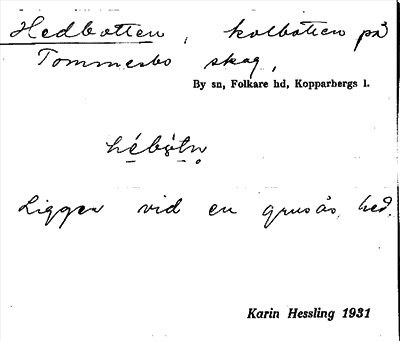 Hedbotten, kolbotten på
Tommesbo skog,
By sn, Folkare hd, Kopparbergs l.
hébǫtn̥
Ligger vid en grusås, hed.
Karin Hessling 1931